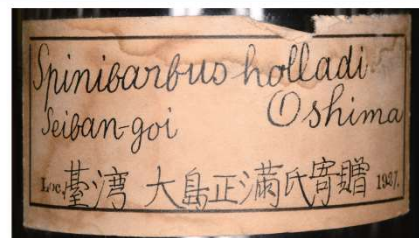 Spinibarbus holladi
Seiban-goi Oshima
Loc. 臺灣 大島正満氏寄贈 1927.